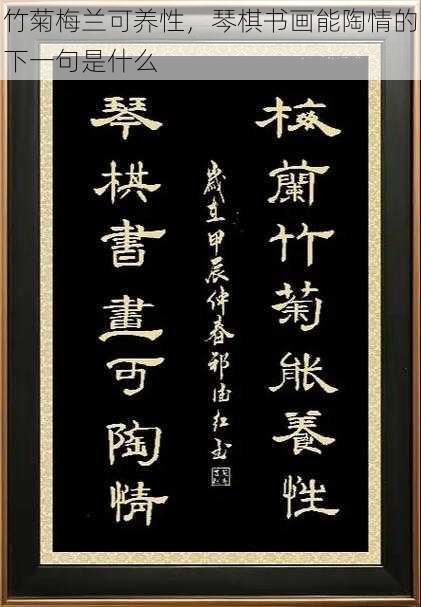 竹菊梅兰可养性，琴棋书画能陶情的
下一句是什么
梅蘭竹菊能養性
歲在甲辰仲春祁
琴棋書畫可陶情